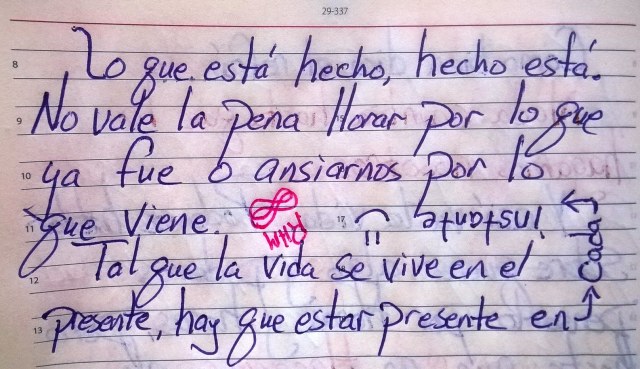 29-337
8 Lo que está hecho, hecho está.
9 No vale la pena llorar por lo que
10 ya fue o ansiarnos por lo
11 que viene.
12 Tal que la vida se vive en el
13 presente, hay que estar presente en
Cada
instante
17